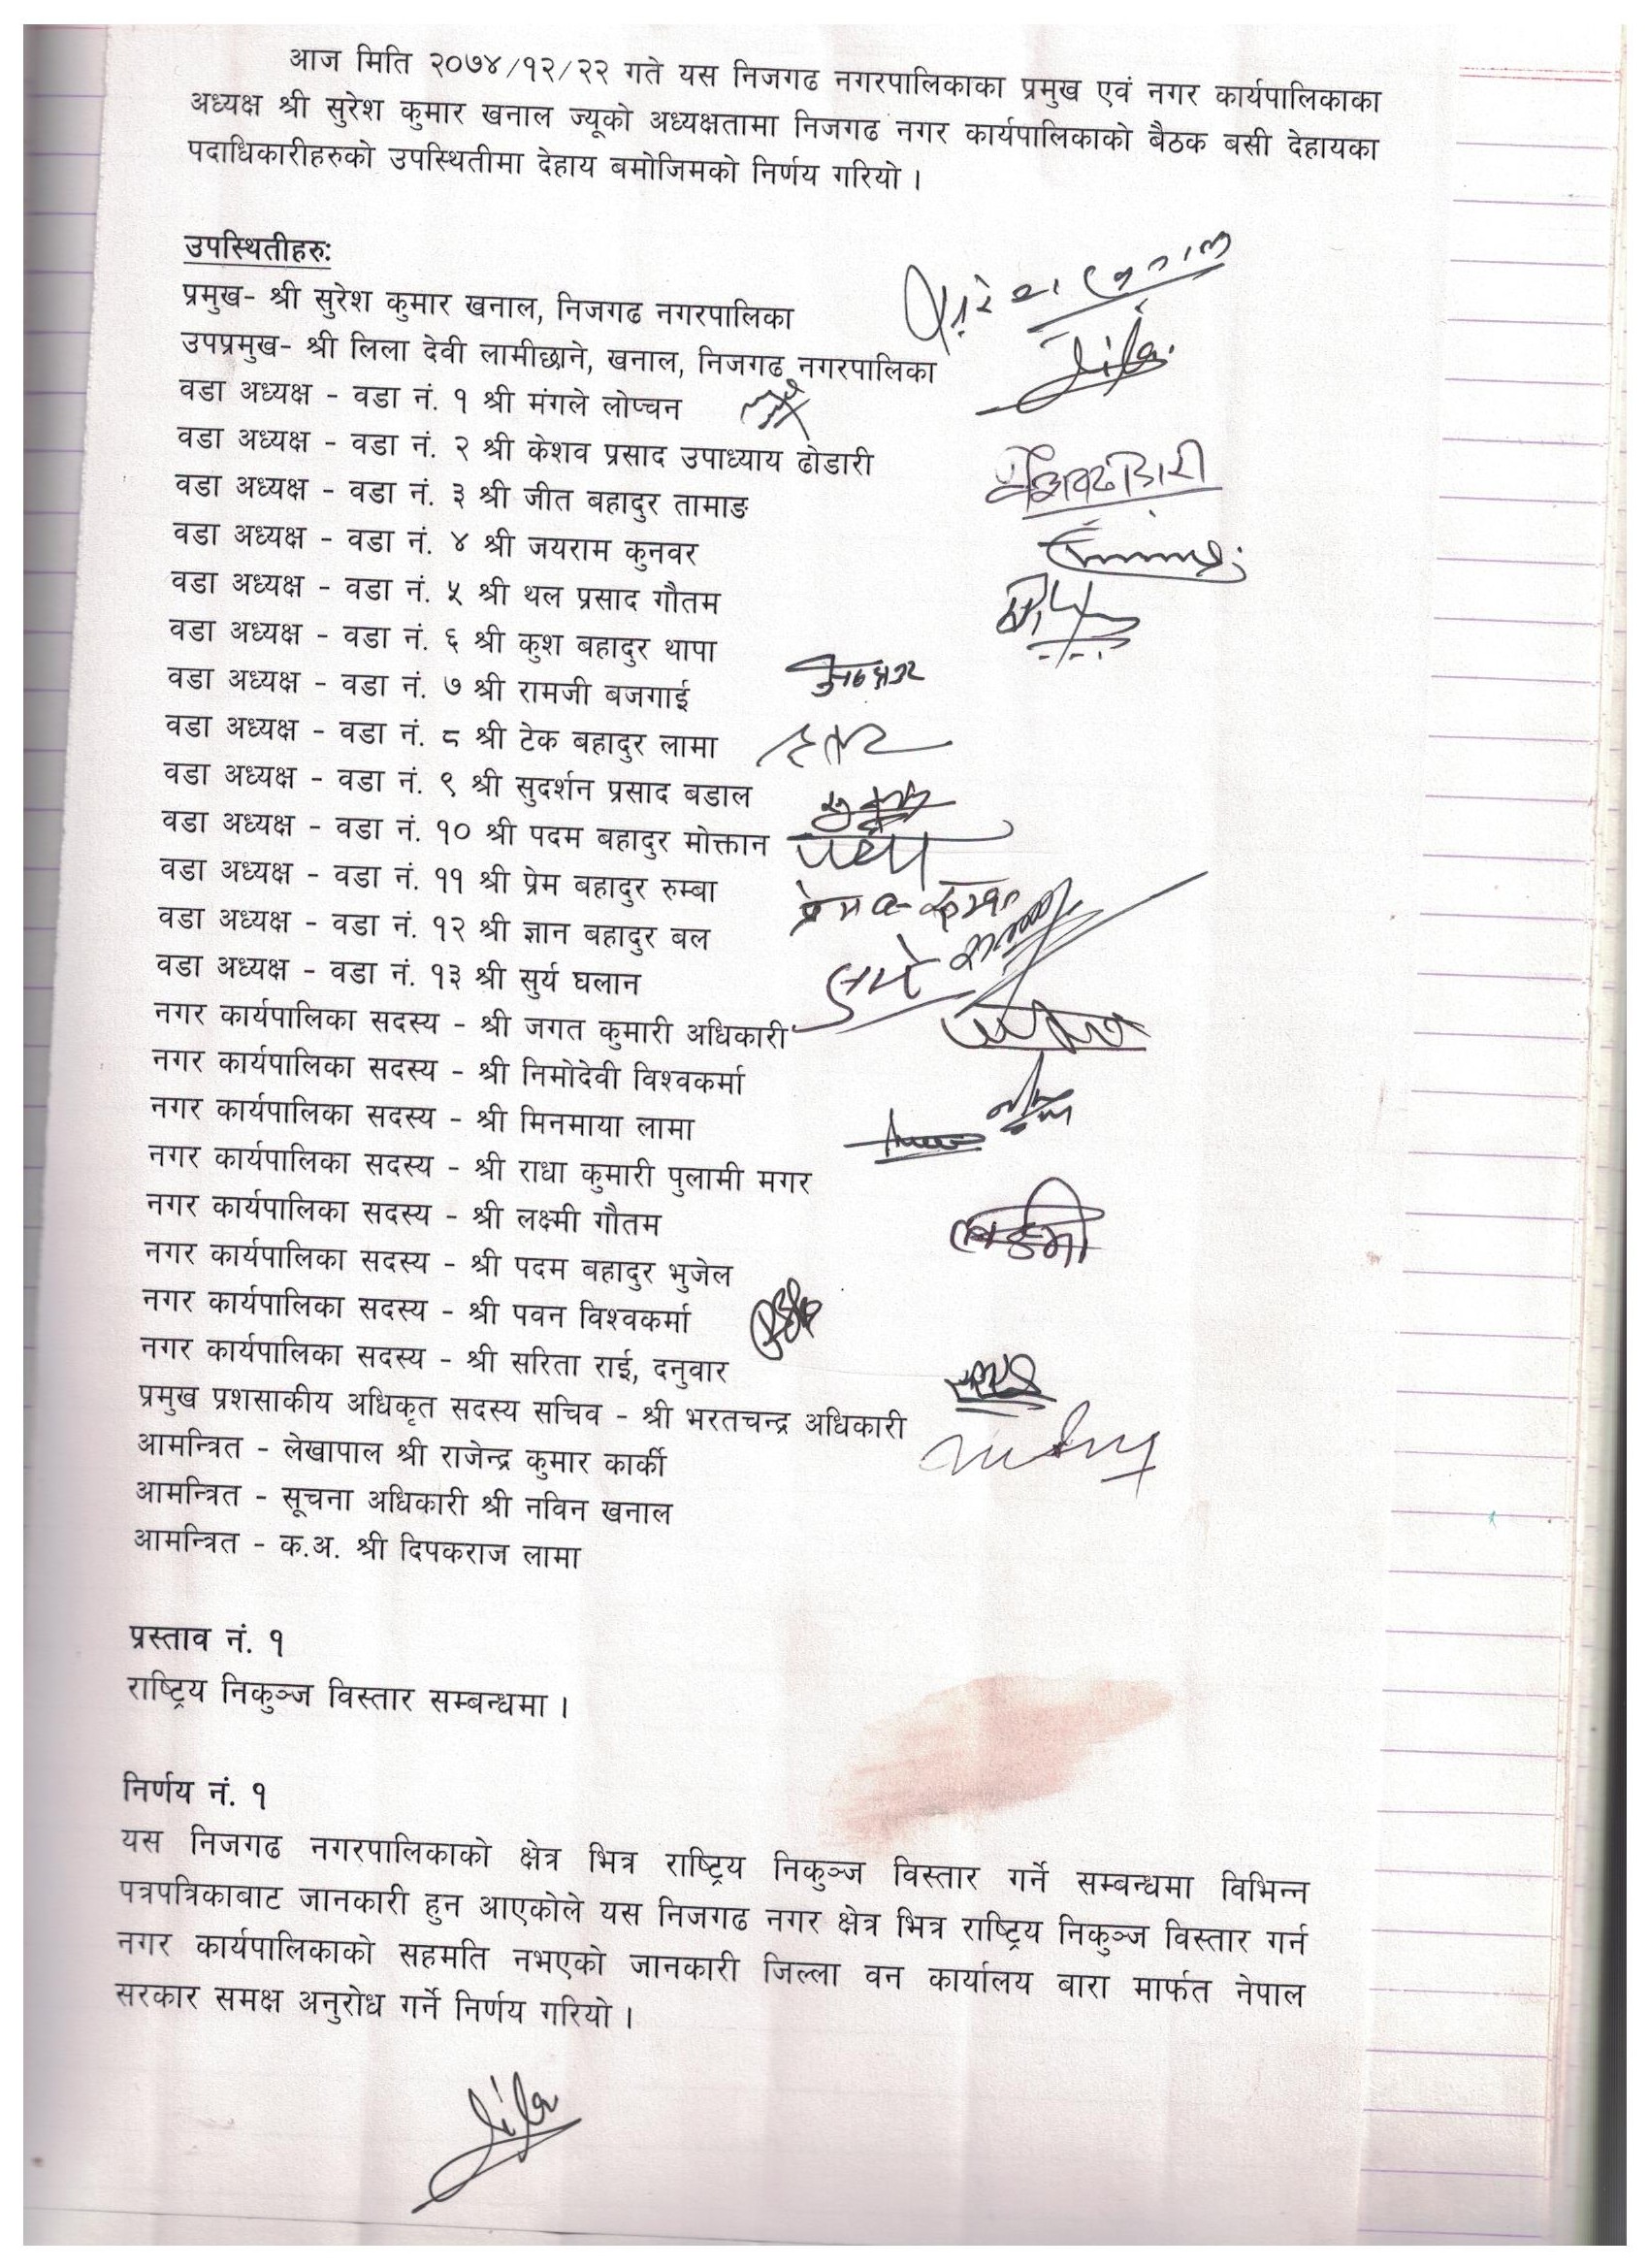 आज मिति २०७४/१२/२२ गते यस निजगढ नगरपालिकाका प्रमुख एवं नगर कार्यपालिकाका
अध्यक्ष श्री सुरेश कुमार खनाल ज्यूको अध्यक्षतामा निजगढ नगर कार्यपालिकाको बैठक बसी देहायका
पदाधिकारीहरुको उपस्थितीमा देहाय बमोजिमको निर्णय गरियो ।
उपस्थितीहरु:
प्रमुख- श्री सुरेश कुमार खनाल, निजगढ नगरपालिका
उपप्रमुख- श्री लिला देवी लामीछाने, खनाल, निजगढ नगरपालिका
वडा अध्यक्ष - वडा नं. १ श्री मंगले लोप्चन
वडा अध्यक्ष - वडा नं. २ श्री केशव प्रसाद उपाध्याय ढोडारी
वडा अध्यक्ष - वडा नं. ३ श्री जीत बहादुर तामाङ
वडा अध्यक्ष - वडा नं. ४ श्री जयराम कुनवर
वडा अध्यक्ष - वडा नं. ५ श्री थल प्रसाद गौतम
वडा अध्यक्ष - वडा नं. ६ श्री कुश बहादुर थापा
वडा अध्यक्ष - वडा नं. ७ श्री रामजी बजगाई
वडा अध्यक्ष - वडा नं. ८ श्री टेक बहादुर लामा
वडा अध्यक्ष - वडा नं. ९ श्री सुदर्शन प्रसाद बडाल
वडा अध्यक्ष - वडा नं. १० श्री पदम बहादुर मोक्तान
वडा अध्यक्ष - वडा नं. ११ श्री प्रेम बहादुर रुम्बा
वडा अध्यक्ष - वडा नं. १२ श्री ज्ञान बहादुर बल
वडा अध्यक्ष - वडा नं. १३ श्री सुर्य घलान
नगर कार्यपालिका सदस्य - श्री जगत कुमारी अधिकारी
नगर कार्यपालिका सदस्य - श्री निमोदेवी विश्वकर्मा
नगर कार्यपालिका सदस्य - श्री मिनमाया लामा
नगर कार्यपालिका सदस्य - श्री राधा कुमारी पुलामी मगर
नगर कार्यपालिका सदस्य - श्री लक्ष्मी गौतम
नगर कार्यपालिका सदस्य - श्री पदम बहादुर भुजेल
नगर कार्यपालिका सदस्य - श्री पवन विश्वकर्मा
नगर कार्यपालिका सदस्य - श्री सरिता राई, दनुवार
प्रमुख प्रशसाकीय अधिकृत सदस्य सचिव - श्री भरतचन्द्र अधिकारी
आमन्त्रित - लेखापाल श्री राजेन्द्र कुमार कार्की
आमन्त्रित - सूचना अधिकारी श्री नविन खनाल
आमन्त्रित - क.अ. श्री दिपकराज लामा
प्रस्ताव नं. १
राष्ट्रिय निकुञ्ज विस्तार सम्बन्धमा ।
निर्णय नं. १
यस निजगढ नगरपालिकाको क्षेत्र भित्र राष्ट्रिय निकुञ्ज विस्तार गर्ने सम्बन्धमा विभिन्न
पत्रपत्रिकाबाट जानकारी हुन आएकोले यस निजगढ नगर क्षेत्र भित्र राष्ट्रिय निकुञ्ज विस्तार गर्न
नगर कार्यपालिकाको सहमति नभएको जानकारी जिल्ला वन कार्यालय बारा मार्फत नेपाल
सरकार समक्ष अनुरोध गर्ने निर्णय गरियो ।